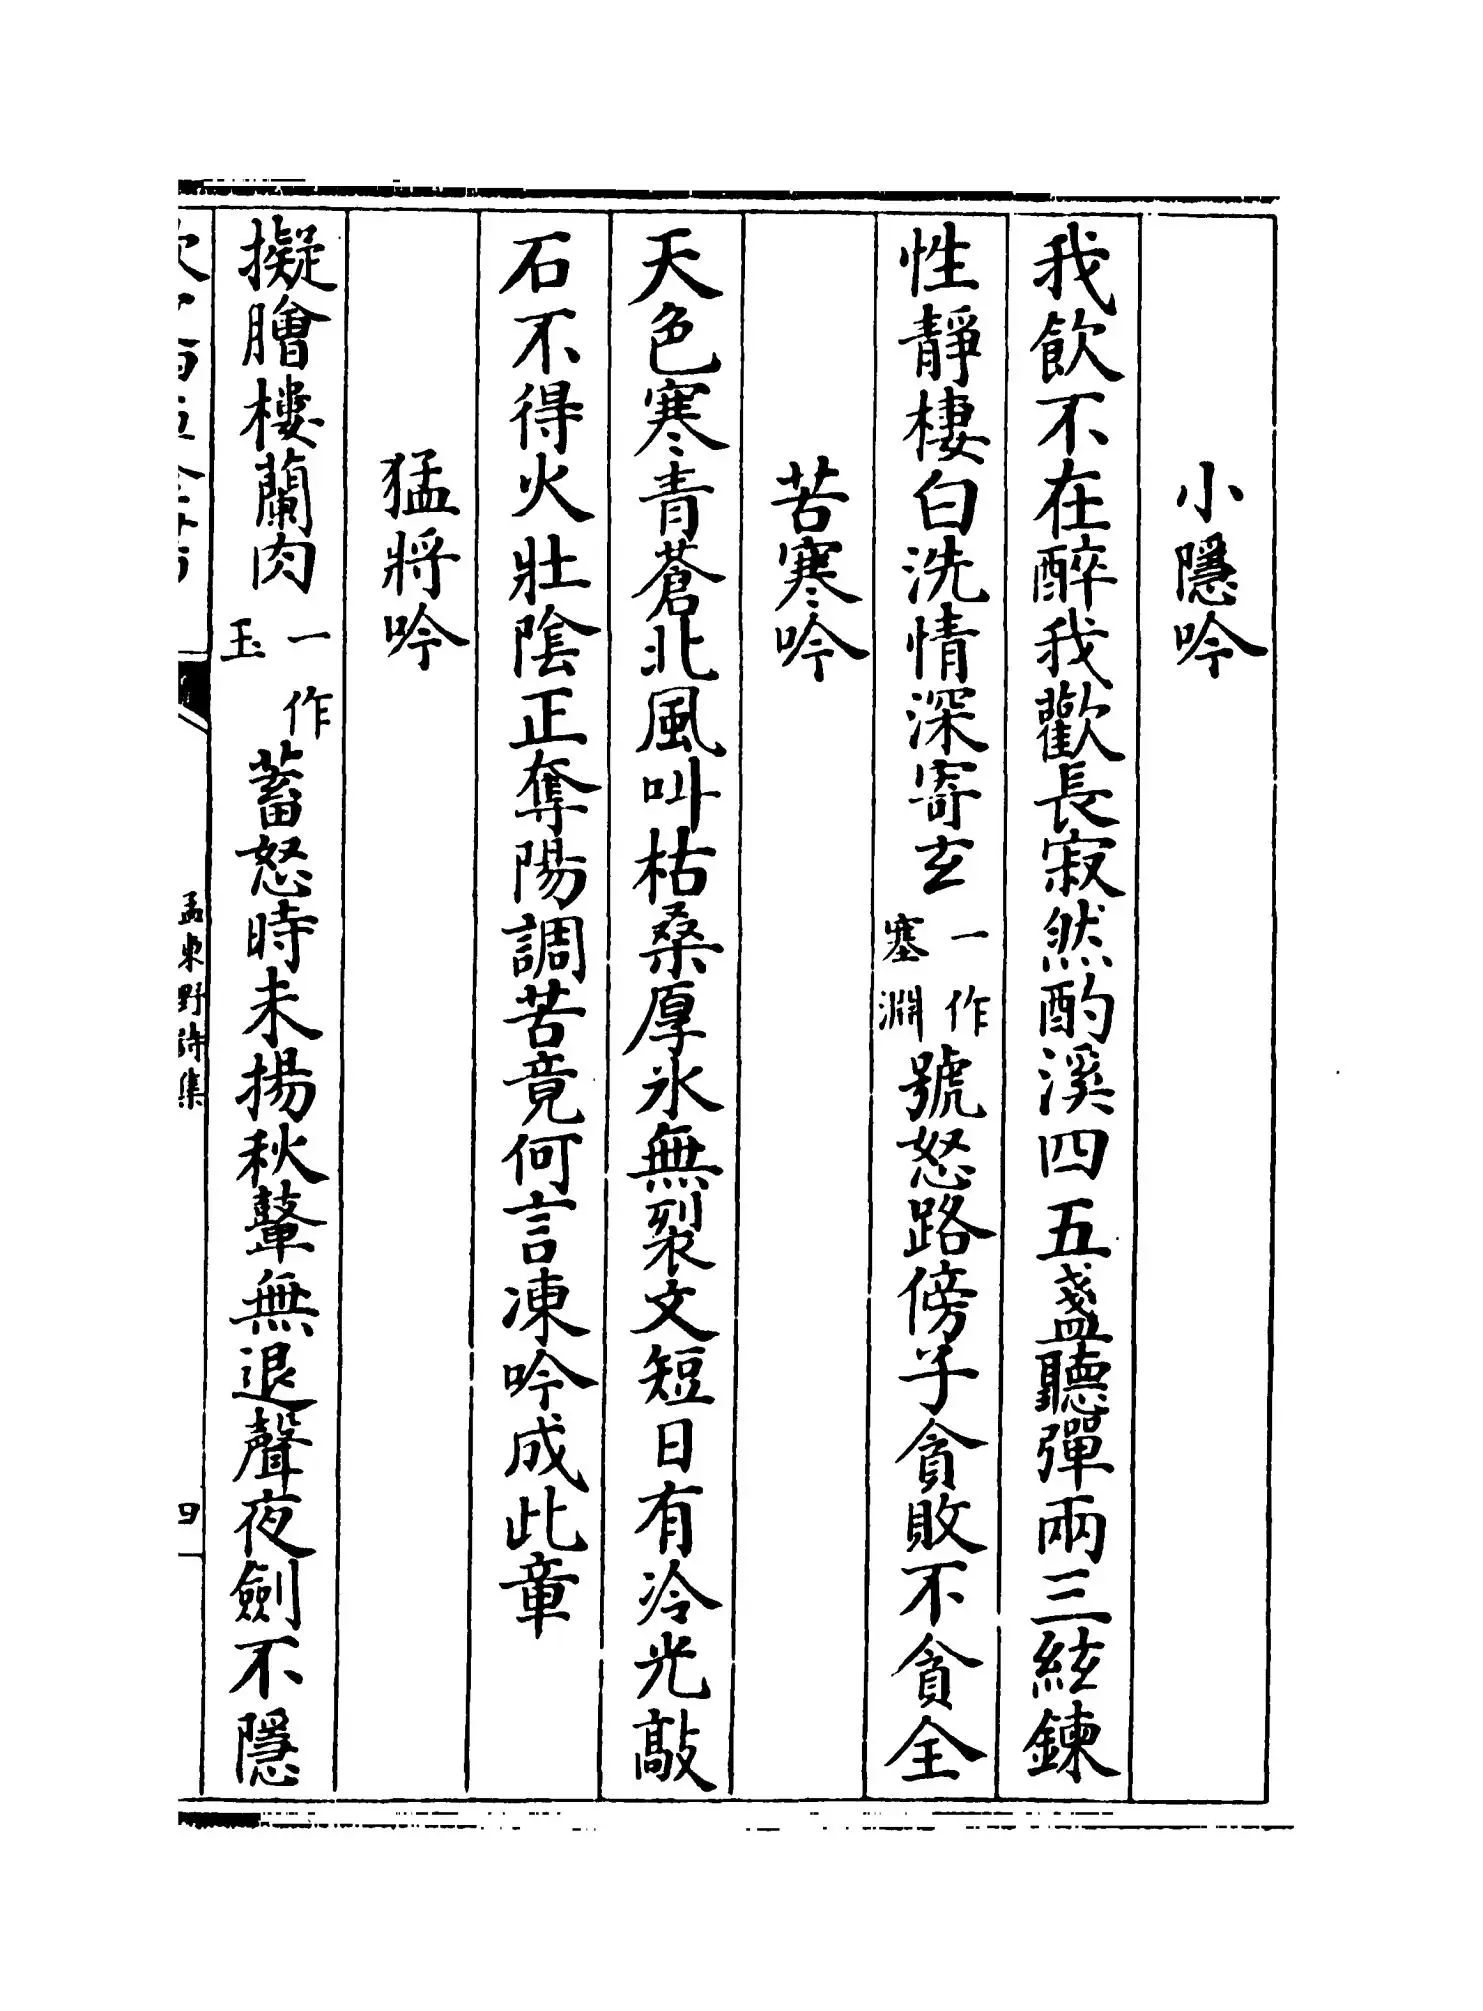 小隱吟
我飲不在醉我歡長寂然酌溪四五盞聽彈兩三絃鍊
性靜棲白洗情深寄玄一作塞淵號怒路傍子貪敗不貪全
苦寒吟
天色寒青蒼北風叫枯桑厚氷無裂文短日有冷光敲
石不得火壯陰正奪陽調苦竟何言凍吟成此章
猛將吟
擬膾樓蘭肉一作玉蓄怒時未揚秋鼙無退聲夜劍不隱
孟東野詩集
四